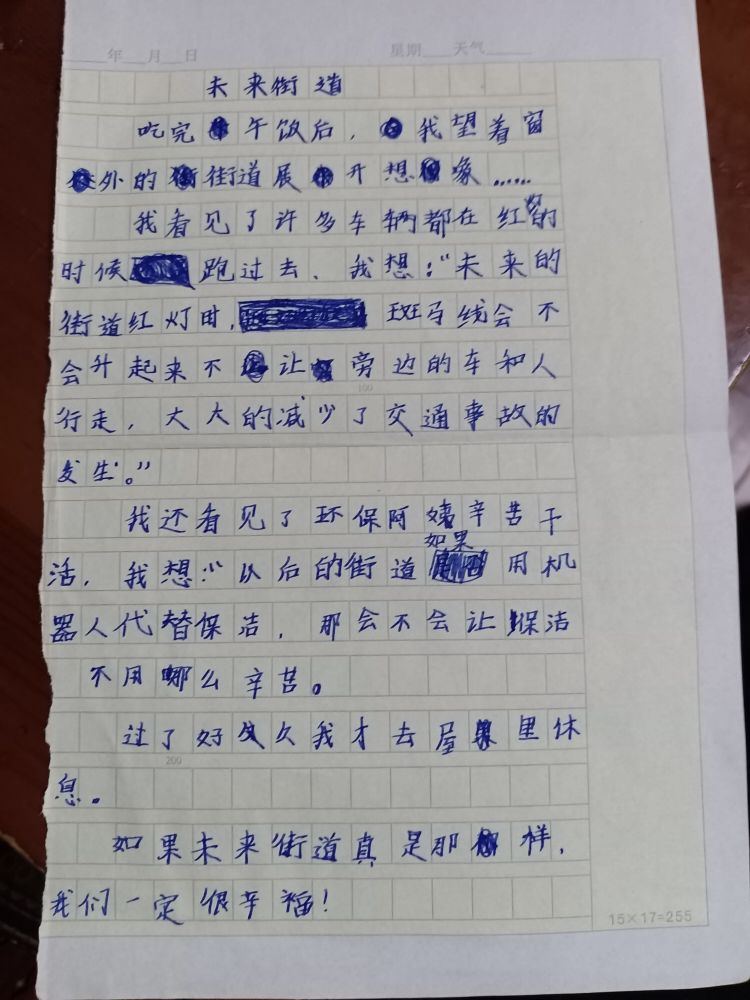 年 月 日 星期 天气
未来街道
吃完午饭后，我望着窗
外的街道展开想像……
我看见了许多车辆都在红灯的
时候跑过去、我想：“未来的
街道红灯时，斑马线会不
会升起来不让旁边的车和人
行走，大大的减少了交通事故的
发生。”
我还看见了环保阿姨辛苦干
活，我想：“以后的街道如果用机
器人代替保洁，那会不会让保洁
不用那么辛苦。
过了好久久我才去屋里休
息。
如果未来街道真是那样，
我们一定很辛福！
100
200
15×17=255